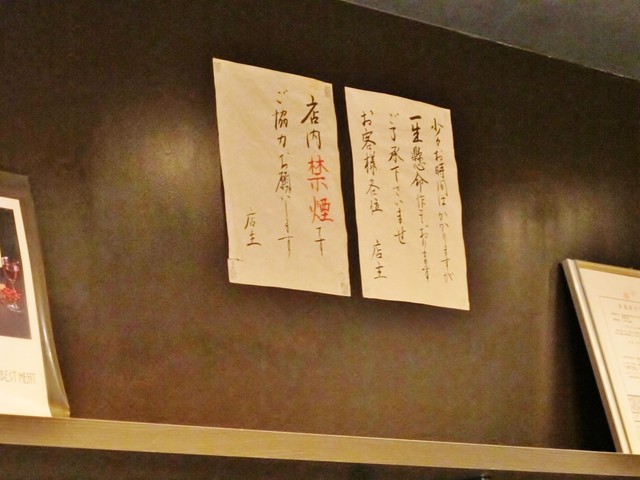 少々お時間はかかりますが
一生懸命作っております
ご了承下さいませ
お客様各位
店主
店内禁煙です
ご協力お願いします
店主
BEST MEAT